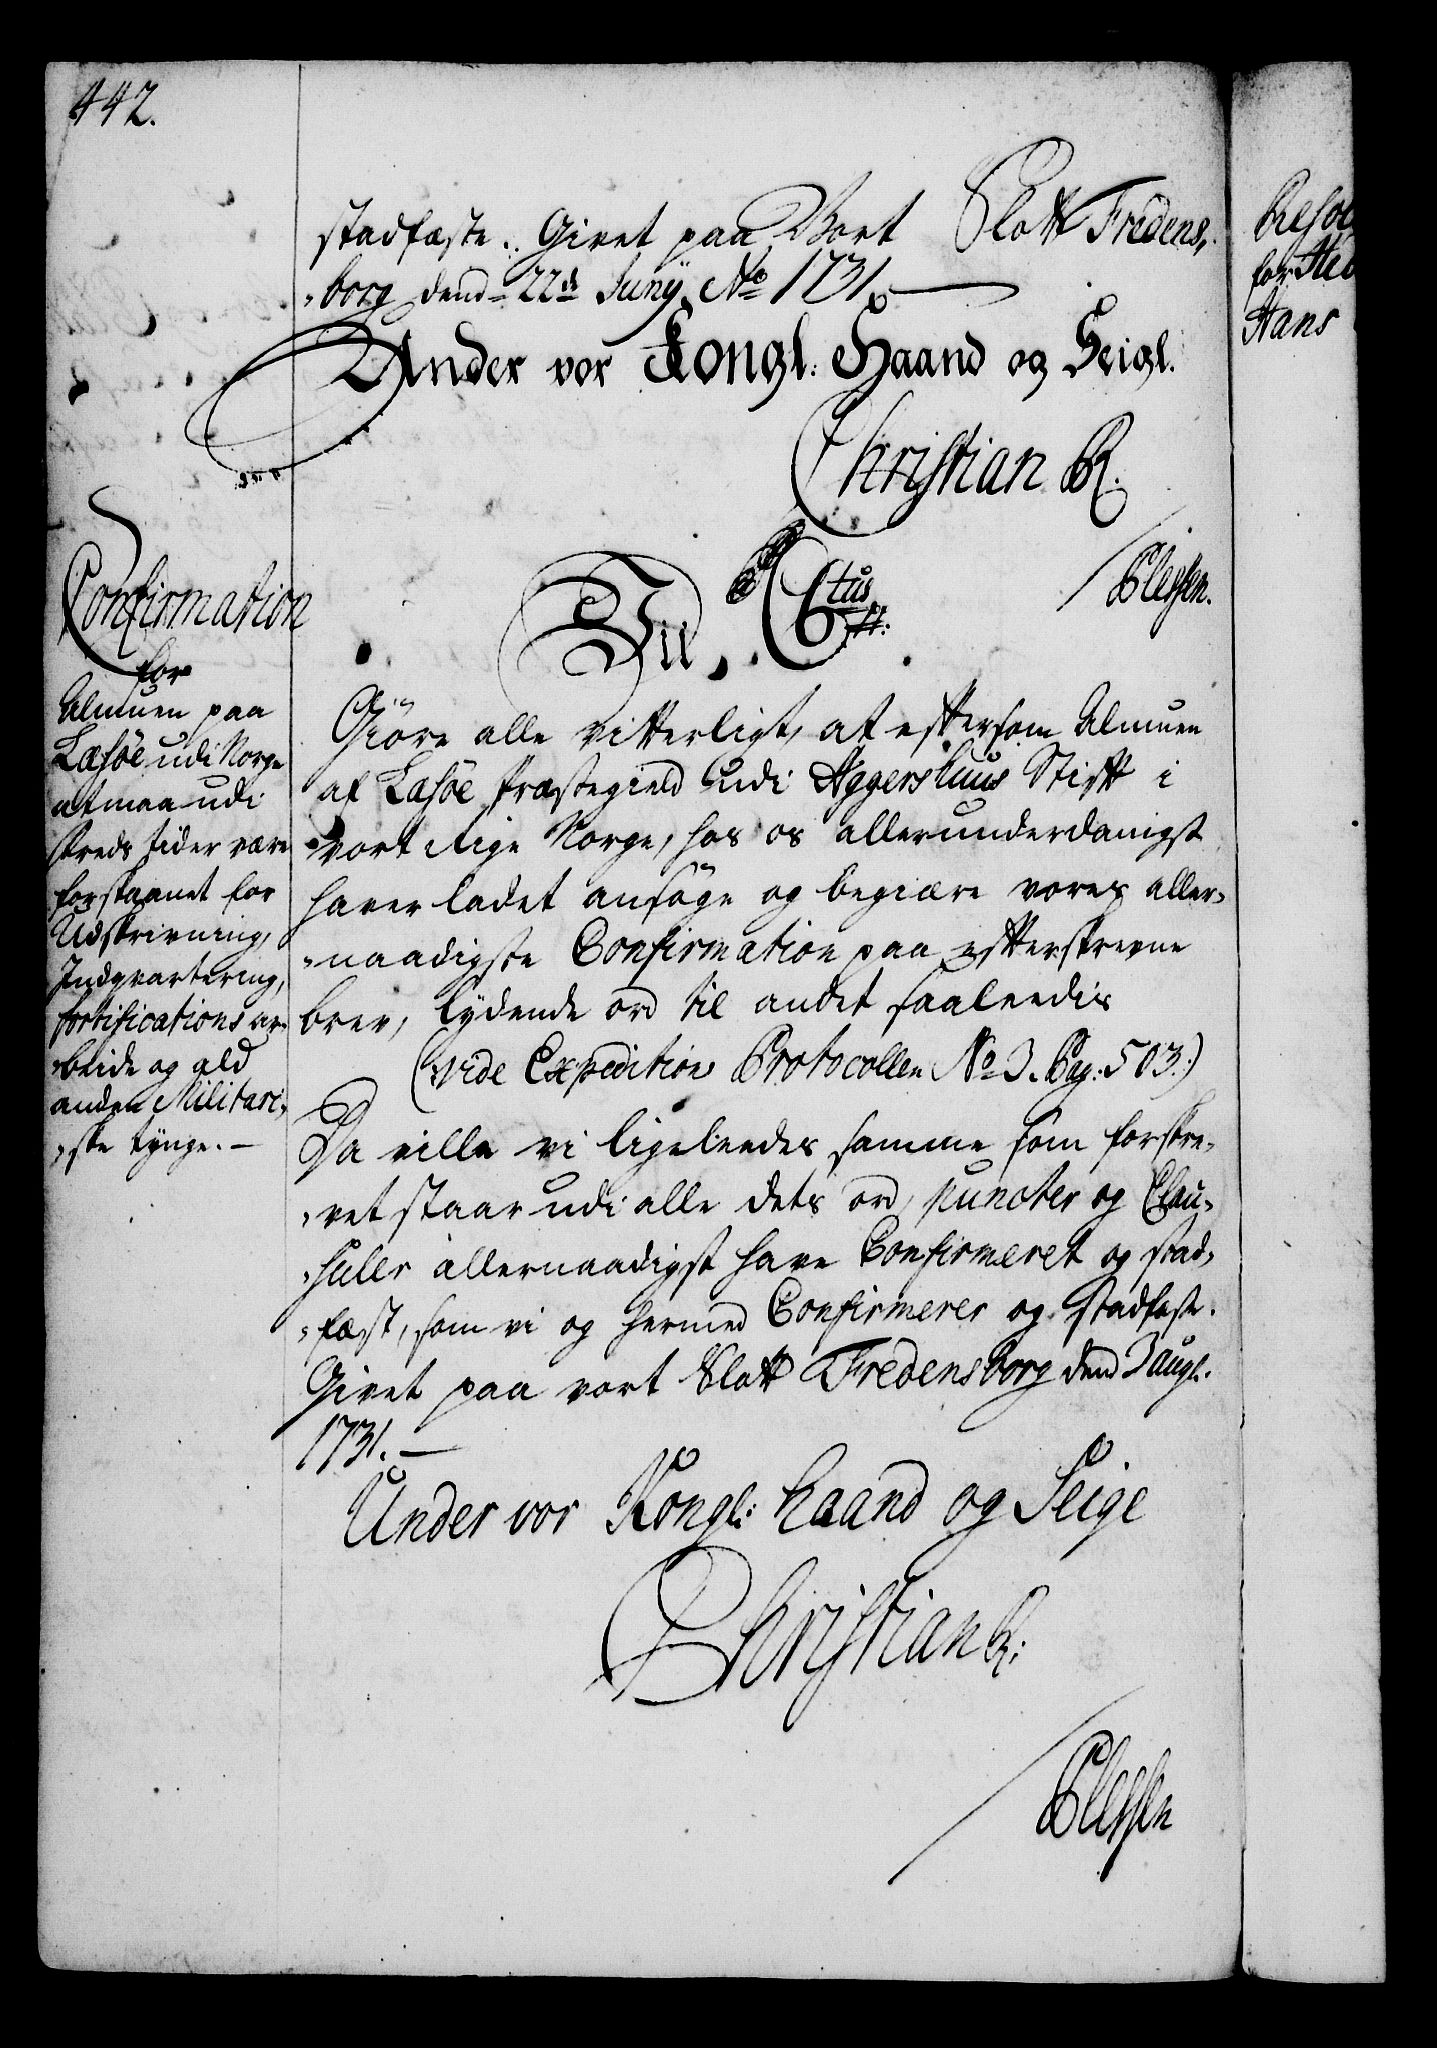 442.
stadfæste. Givet paa Vort Slott Fridens,
„borg dend 22de Junÿ Ao 1731.
Under vor Kongl: Haand og Seigl.
Christian R.
Plessen.
Confirmation
for
Almuen paa
Læsöe udi Norge
at maa udi
freds tider være
forskaanet for
Udskrivning,
Indqvartering,
fortifications ar„
„beide og ald
anden Militari„
„ske tÿnge. —
Vii, C 6tus
Giöre alle vitterligt, at eftersom Almuen
af Læsöe Præstegield udi Aggershuus Stift i
vort Rige Norge, hos os allerunderdanigst
haver ladet ansöge og begiære vores aller„
„naadigste Confirmation paa efterskrevne
brev, lÿdende ord til andet saaleedis
(vide Expedition Protocollen No 3. Pag: 503.)
Da ville vi ligeleedes samme som forskre„
„vet staar udi alle dets ord, puncter og Clau„
„suler allernaadigst have Confirmeret og stad„
„fæst, som vi og hermed Confirmerer og stadfæste.
Givet paa vort Slott Fredensborg dend 3 aug:
1731. —
Under vor Kongl: haand og Seigl
Christian R:
Plessen
Resol
for
Hans